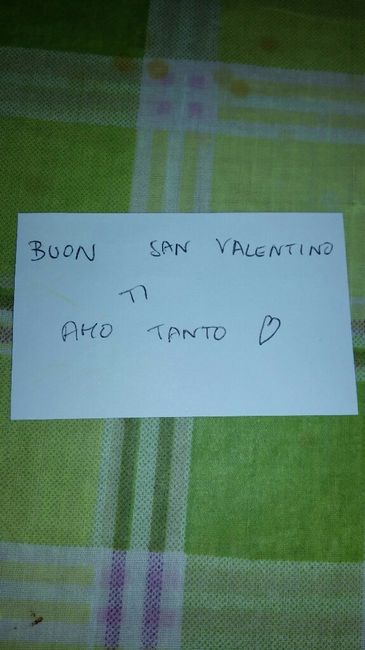 BUON SAN VALENTINO
TI
AMO TANTO ♡